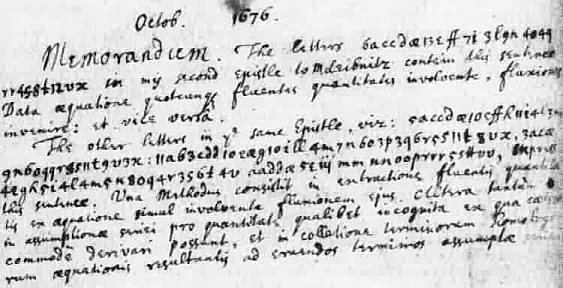 Octob. 1676.
Memorandum. The letters 6accdæ13eff7i3l9n4o4q
rr4s8t12vx in my second epistle to M. Leibnitz contein this sentence
Data æquatione quotcunq fluentes quantitates involvente, fluxiones
invenire: et vice versâ.
The other letters in yᵉ same Epistle, viz: 5accdæ10effh11i4l3m
9n6oqqr8s11t9v3x: 11ab3cdd10eæg10ill4m7n6o3p3q6r5s11t8vx, 3acæ
4egh5i4l4m5n8oq4r3s6t4v aaddæ5eiijmmnnooprrr5sttvv, express
this sentence. Una Methodus consistit in extractione fluentis quantita
tis ex æquatione simul involvente fluxionem ejus. Altera tantùm
in assumptione seriei pro quantitate qualibet incognita ex qua cætera
commodè derivari possunt, et in collatione terminorum Homologo
rum æquationis resultantis ad eruendos terminos assumptæ seriei